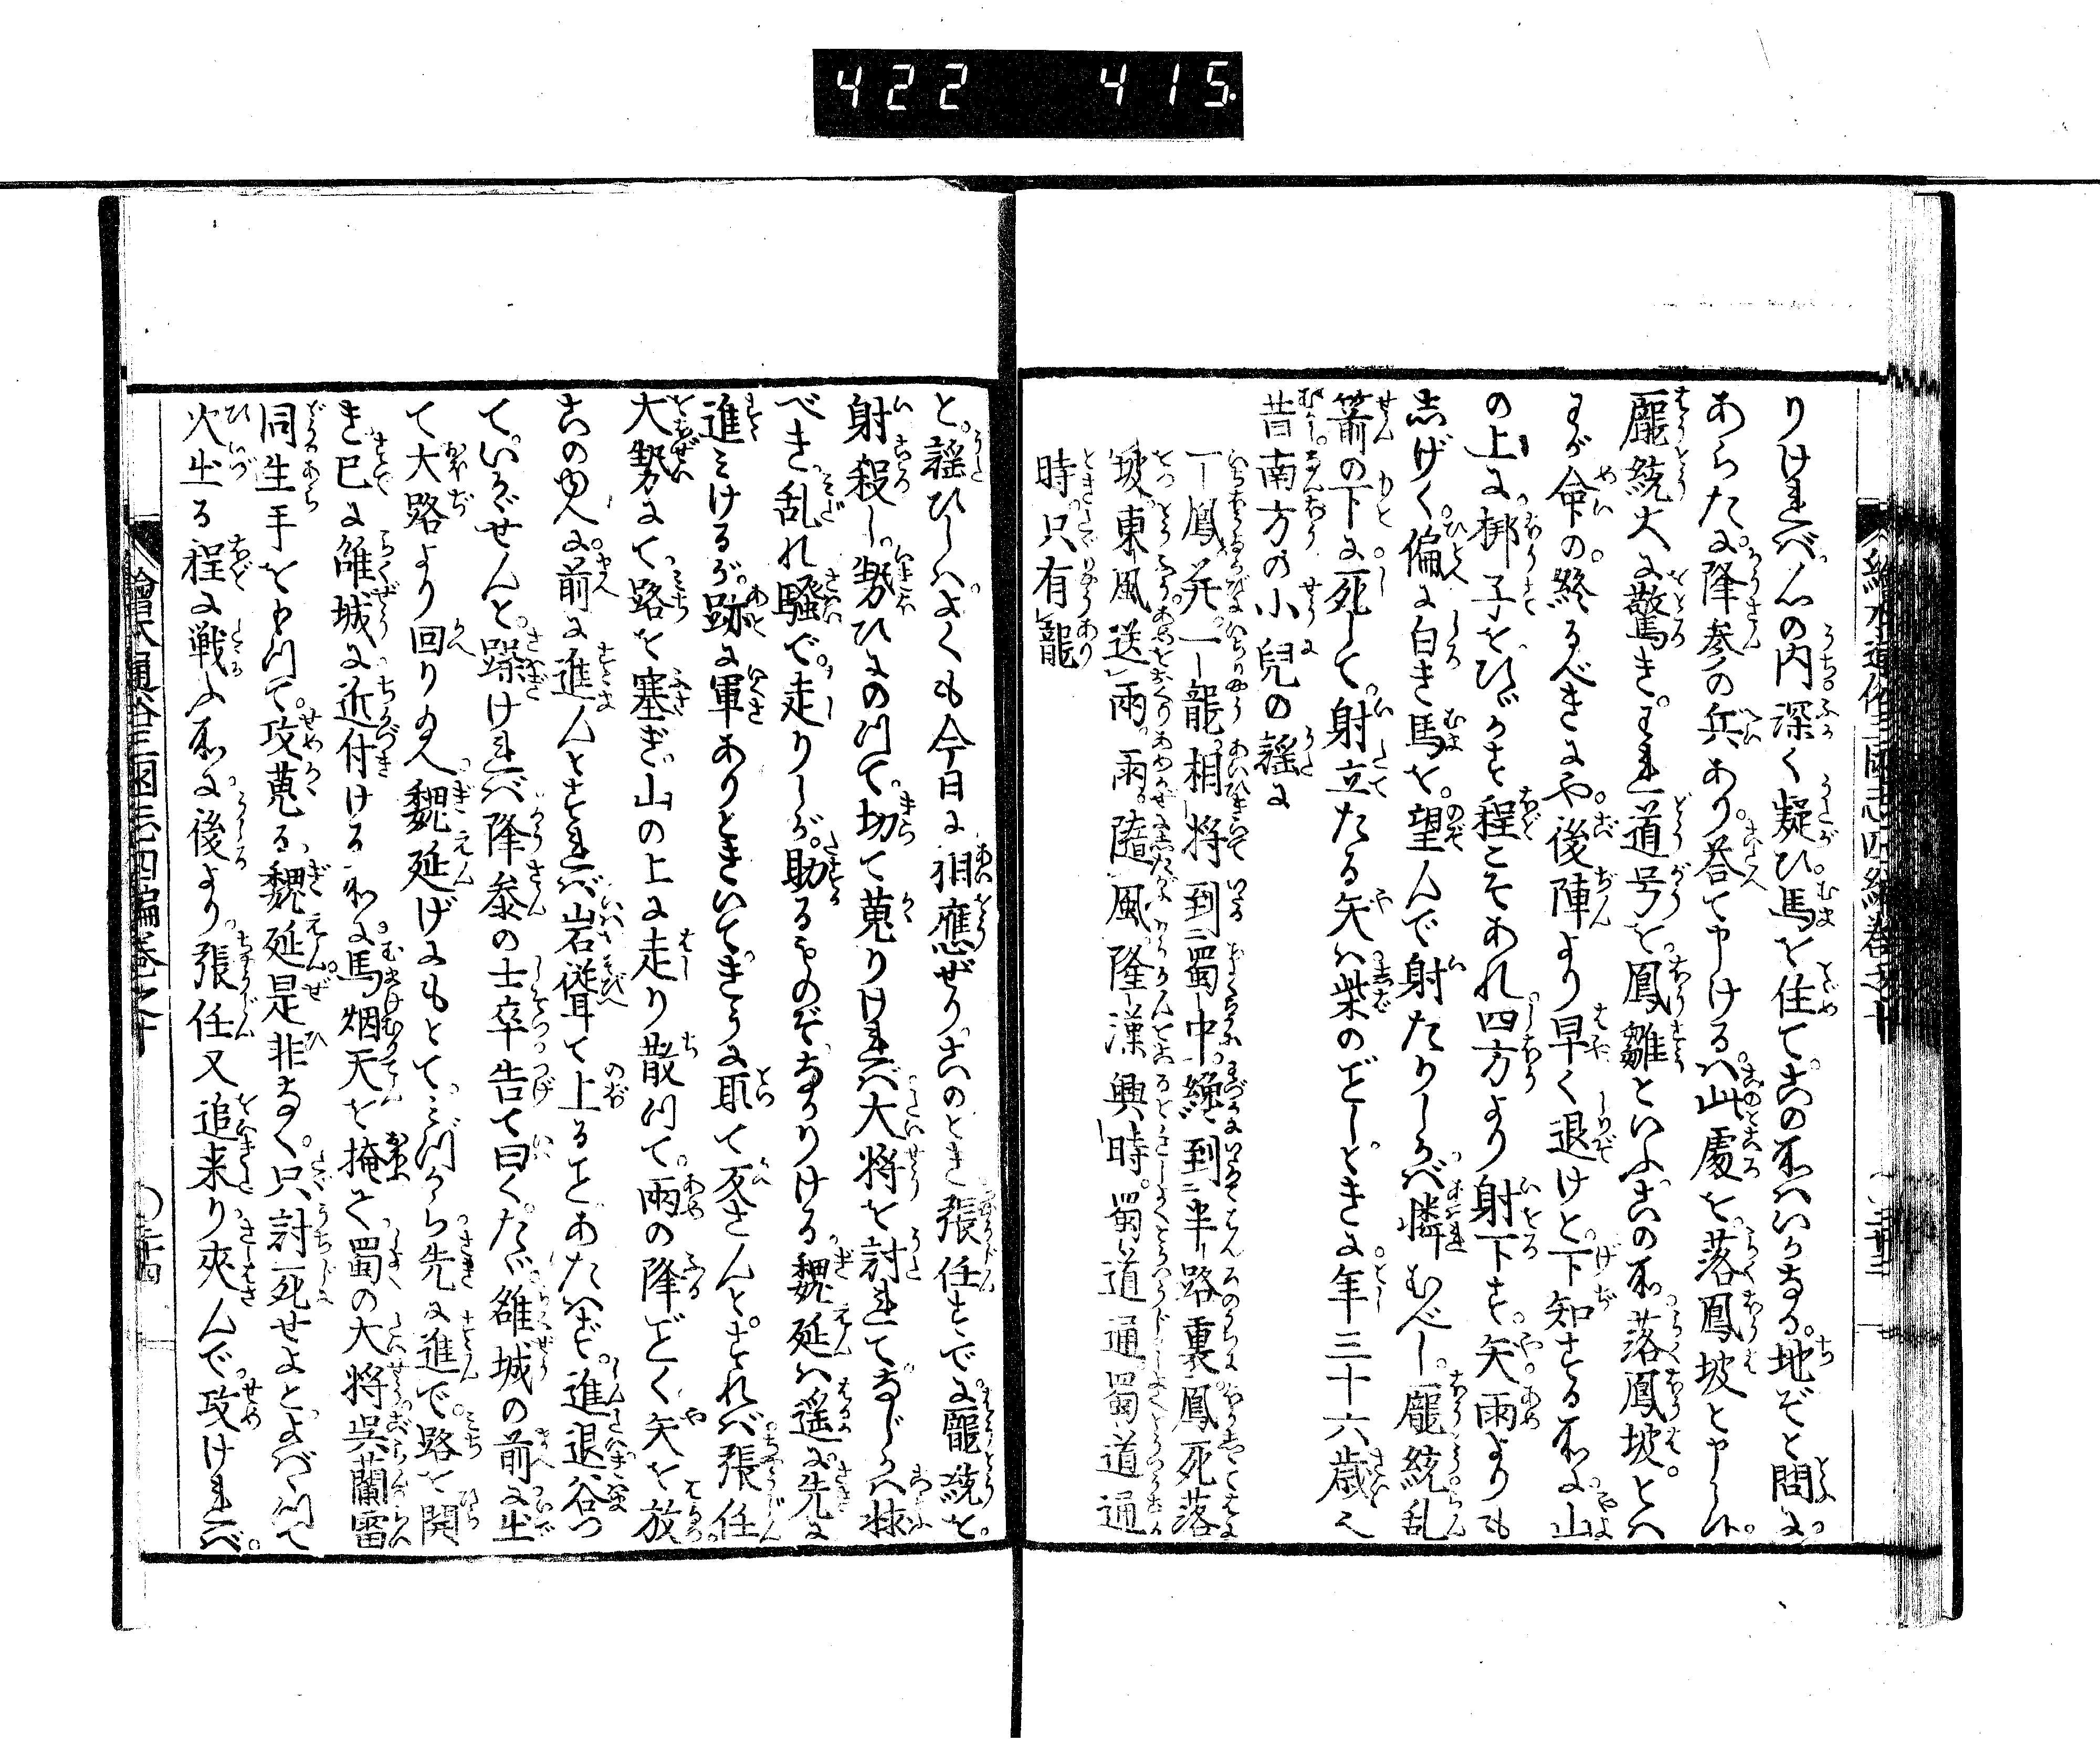 422 415
りければ心の内深く疑ひ馬を住てこの所はいかなる地ぞと問に
あらたに降参の兵あり答て申けるハ此處を落鳳坡と申候
龐統大に驚きわれ道号を鳳雛といふこの所落鳳坡とハ
わが命の終るべきにや後陣より早く退けと下知する所に山
の上に梆子をひゞかす程こそあれ四方より射下す矢雨よりも
しげく偏に白き馬を望んで射たりしかバ憐むべし龐統乱
箭の下に死して射立たる矢ハ柴のごとしときに年三十六歳也
昔南方の小兒の謡に
一鳳并一龍相将到蜀中纔到半路裏鳳死落
坡東風送雨雨隨風隆漢興時蜀道通蜀道通
時只有龍
と謡ひしハよくも今日に相應ぜりこのとき張任すでに龐統を
射殺し勢ひにのつて切て蒐りければ大将を討れてなじかハ怺ふ
べき乱れ騒で走りしが助るものぞなかりける魏延ハ遥に先に
進ミけるが跡に軍ありときいてきうに取て返さんとすれバ張任
大勢にて路を塞ぎ山の上に走り散つて雨の降ごとく矢を放
この由人に前に進んとすれバ岩聳て上ることあたハず進退谷つ
ていかゞせんと躁ければ降参の士卒告て曰くたゞ雒城の前に出
て大路より回り給へ魏延げにもとてミづから先に進で路を開
き已に雒城に近付ける所に馬烟天を掩て蜀の大将呉蘭雷
同生手をわつて攻蒐る魏延是非なく只討死せよとよばゝつて
火出る程に戦ふ所に後より張任又追来り夾んで攻ければ
繪本通俗三國志四編巻之十